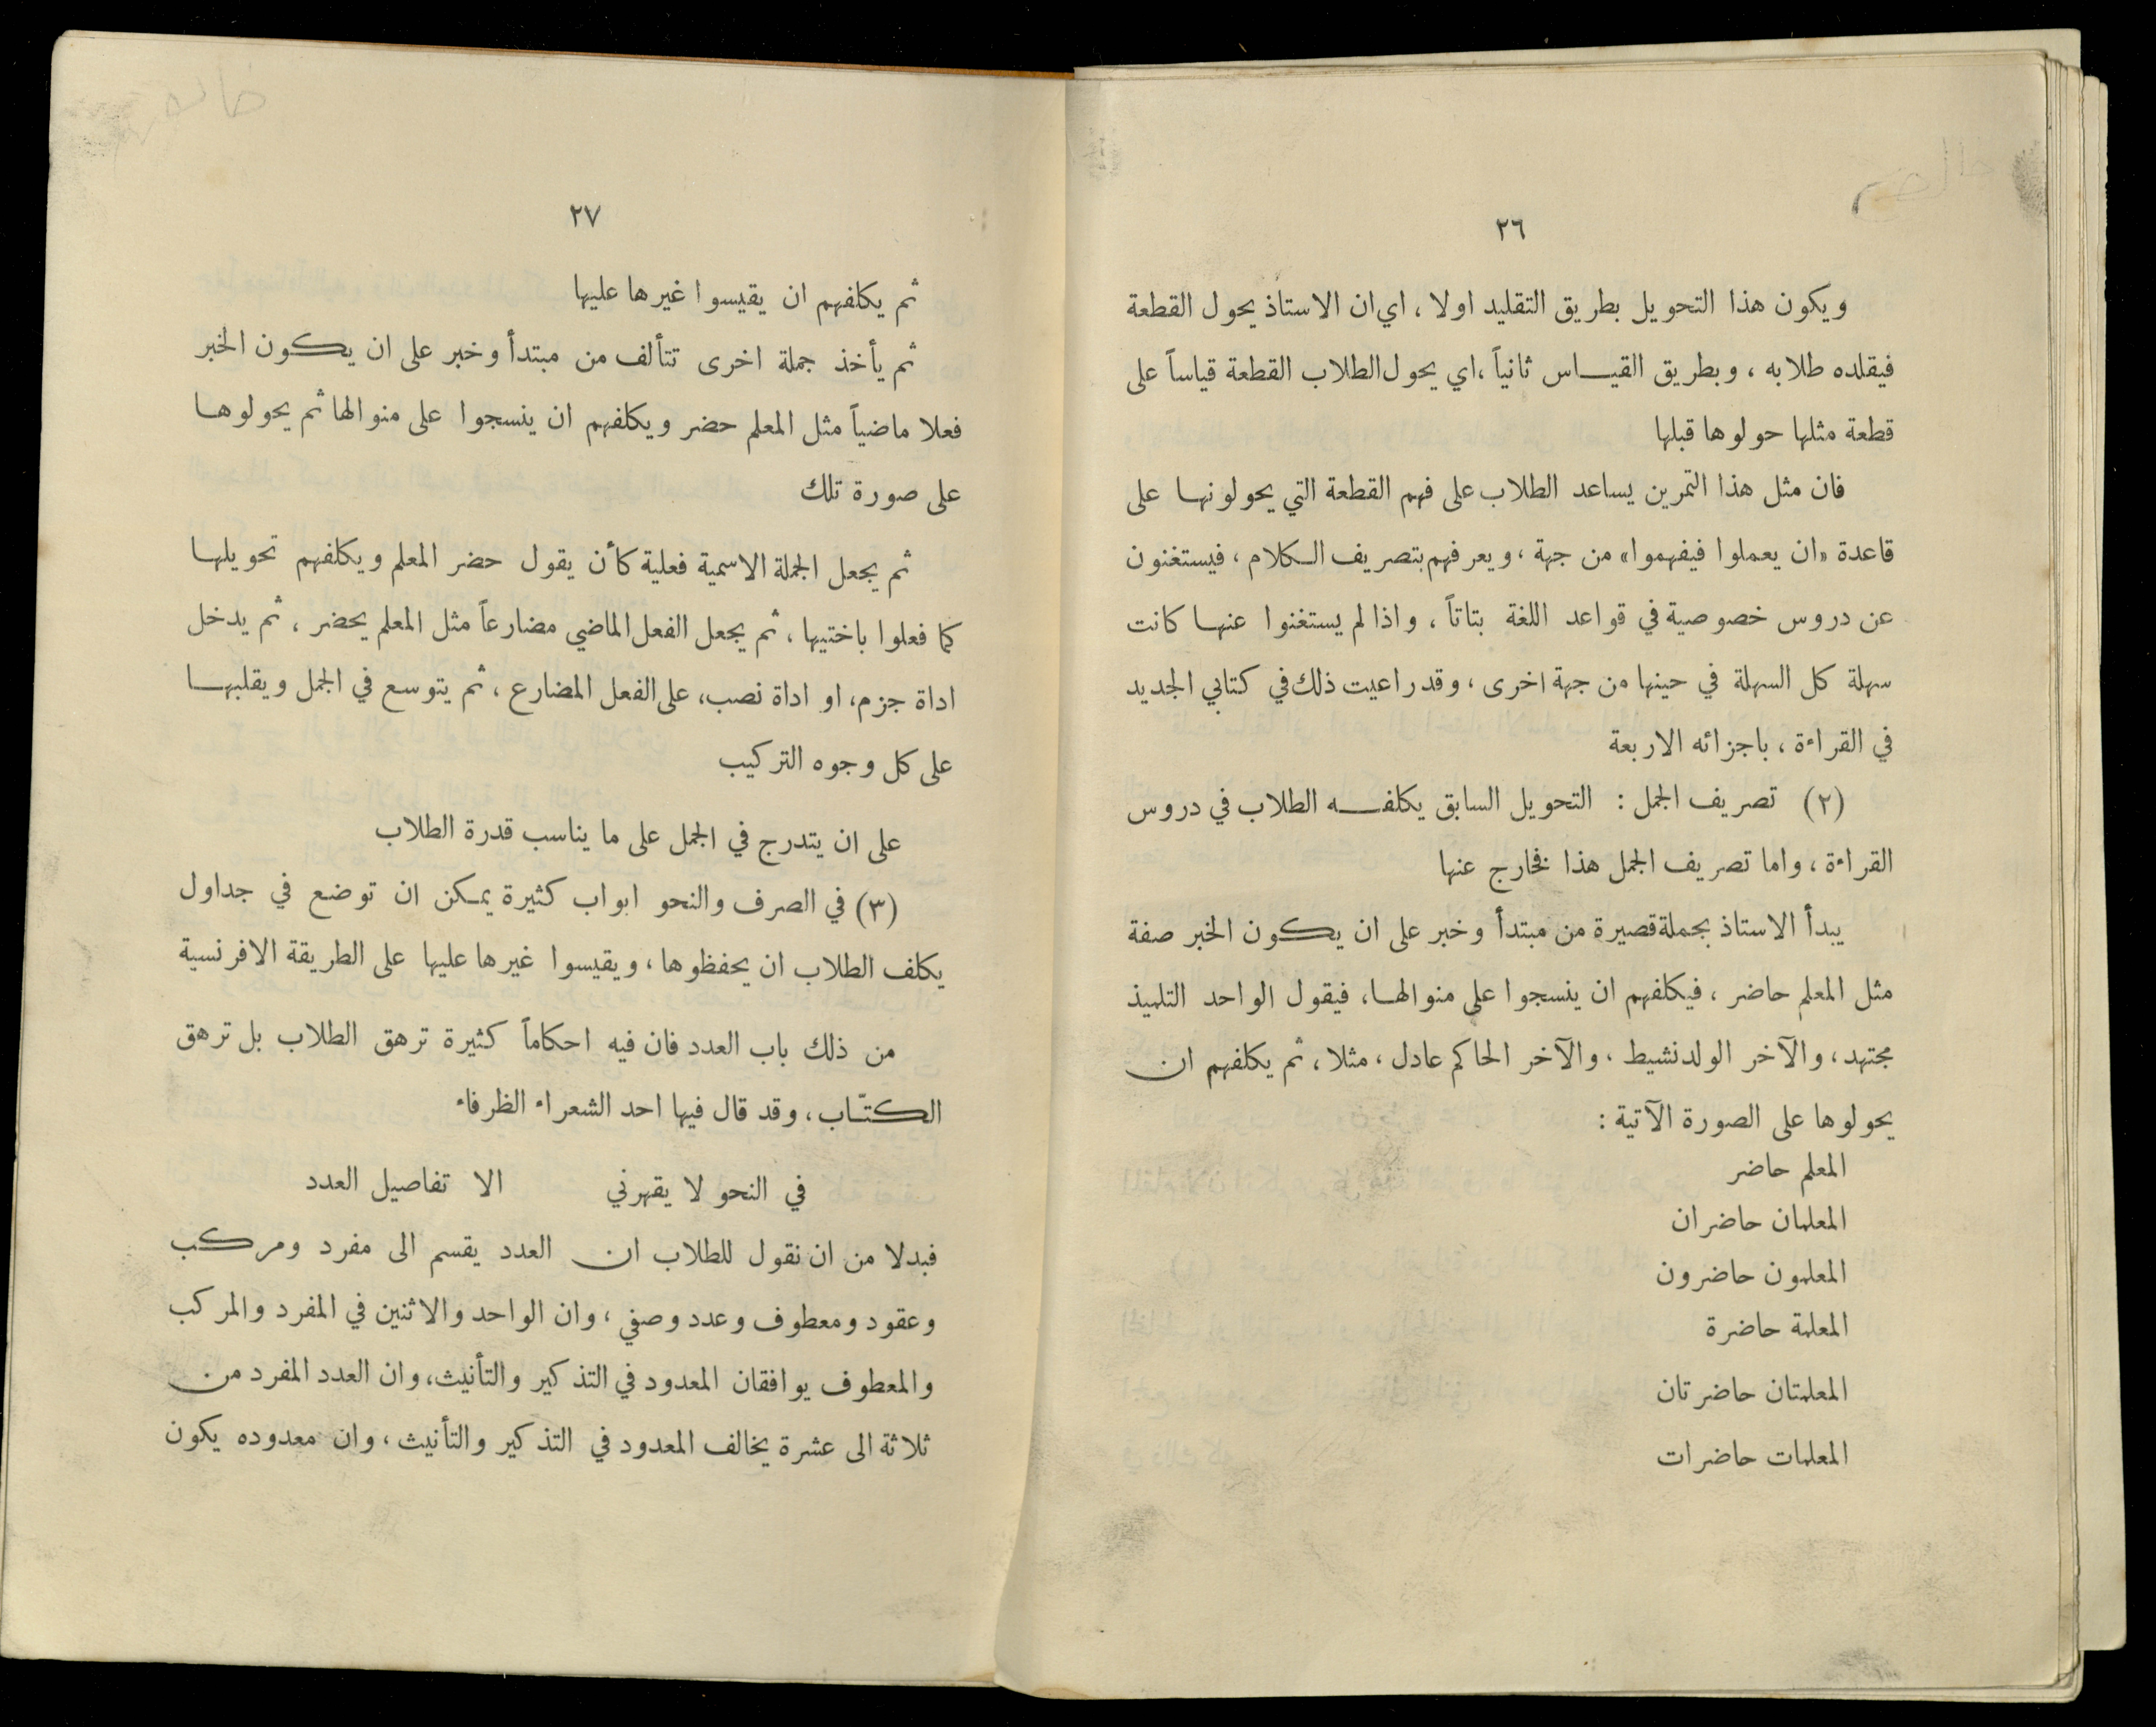 ٢٦
ويكون هذا التحويل بطريق التقليد اولا ، اي ان الاستاذ يحول القطعة
فيقلده طلابه ، وبطريق القياس ثانياً ، اي يحول الطلاب القطعة قياساً على
قطعة مثلها حولوها قبلها
فان مثل هذا التمرين يساعد الطلاب على فهم القطعة التي يحولونها على
قاعدة «ان يعملوا فيفهموا» من جهة ، ويعرفهم بتصريف الكلام ، فيستغنون
عن دروس خصوصية في قواعد اللغة بتاتاً ، واذا لم يستغنوا عنها كانت
سهلة كل السهلة في حينها من جهة اخرى ، وقد راعيت ذلك في كتابي الجديد
في القراءة ، باجزائه الاربعة
(٢) تصريف الجمل : التحويل السابق يكلفه الطلاب في دروس
القراءة ، واما تصريف الجمل هذا فخارج عنها
يبدأ الاستاذ بجملة قصيرة من مبتدأ وخبر على ان يكون الخبر صفة
مثل المعلم حاضر ، فيكلفهم ان ينسجوا على منوالها ، فيقول الواحد التلميذ
مجتهد ، والآخر الولد نشيط ، والآخر الحاكم عادل ، مثلا ، ثم يكلفهم ان
يحولوها على الصورة الآتية :
المعلم حاضر
المعلمان حاضران
المعلمون حاضرون
المعلمة حاضرة
المعلمتان حاضرتان
المعلمات حاضرات
٢٧
ثم يكلفهم ان يقيسوا غيرها عليها
ثم يأخذ جملة اخرى تتألف من مبتدأ وخبر على ان يكون الخبر
فعلا ماضياً مثل المعلم حضر ويكلفهم ان ينسجوا على منوالها ثم يحولوها
على صورة تلك
ثم يجعل الجملة الاسمية فعلية كأن يقول حضر المعلم ويكلفهم تحويلها
كما فعلوا باختيها ، ثم يجعل الفعل الماضي مضارعاً مثل المعلم يحضر ، ثم يدخل
اداة جزم ، او اداة نصب ، على الفعل المضارع ، ثم يتوسع في الجمل ويقلبها
على كل وجوه التركيب
على ان يتدرج في الجمل على ما يناسب قدرة الطلاب
(٣) في الصرف والنحو ابواب كثيرة يمكن ان توضع في جداول
يكلف الطلاب ان يحفظوها ، ويقيسوا غيرها عليها على الطريقة الافرنسية
من ذلك باب العدد فان فيه احكاماً كثيرة ترهق الطلاب بل ترهق
الكتّاب ، وقد قال فيها احد الشعراء الظرفاء
في النحو لا يقهرني الا تفاصيل العدد
فبدلا من ان نقول للطلاب ان العدد يقسم الى مفرد ومركب
وعقود ومعطوف وعدد وصفي ، وان الواحد والاثنين في المفرد والمركب
والمعطوف يوافقان المعدود في التذكير والتأنيث ، وان العدد المفرد من
ثلاثة الى عشرة يخالف المعدود في التذكير والتأنيث ، وان معدوده يكون